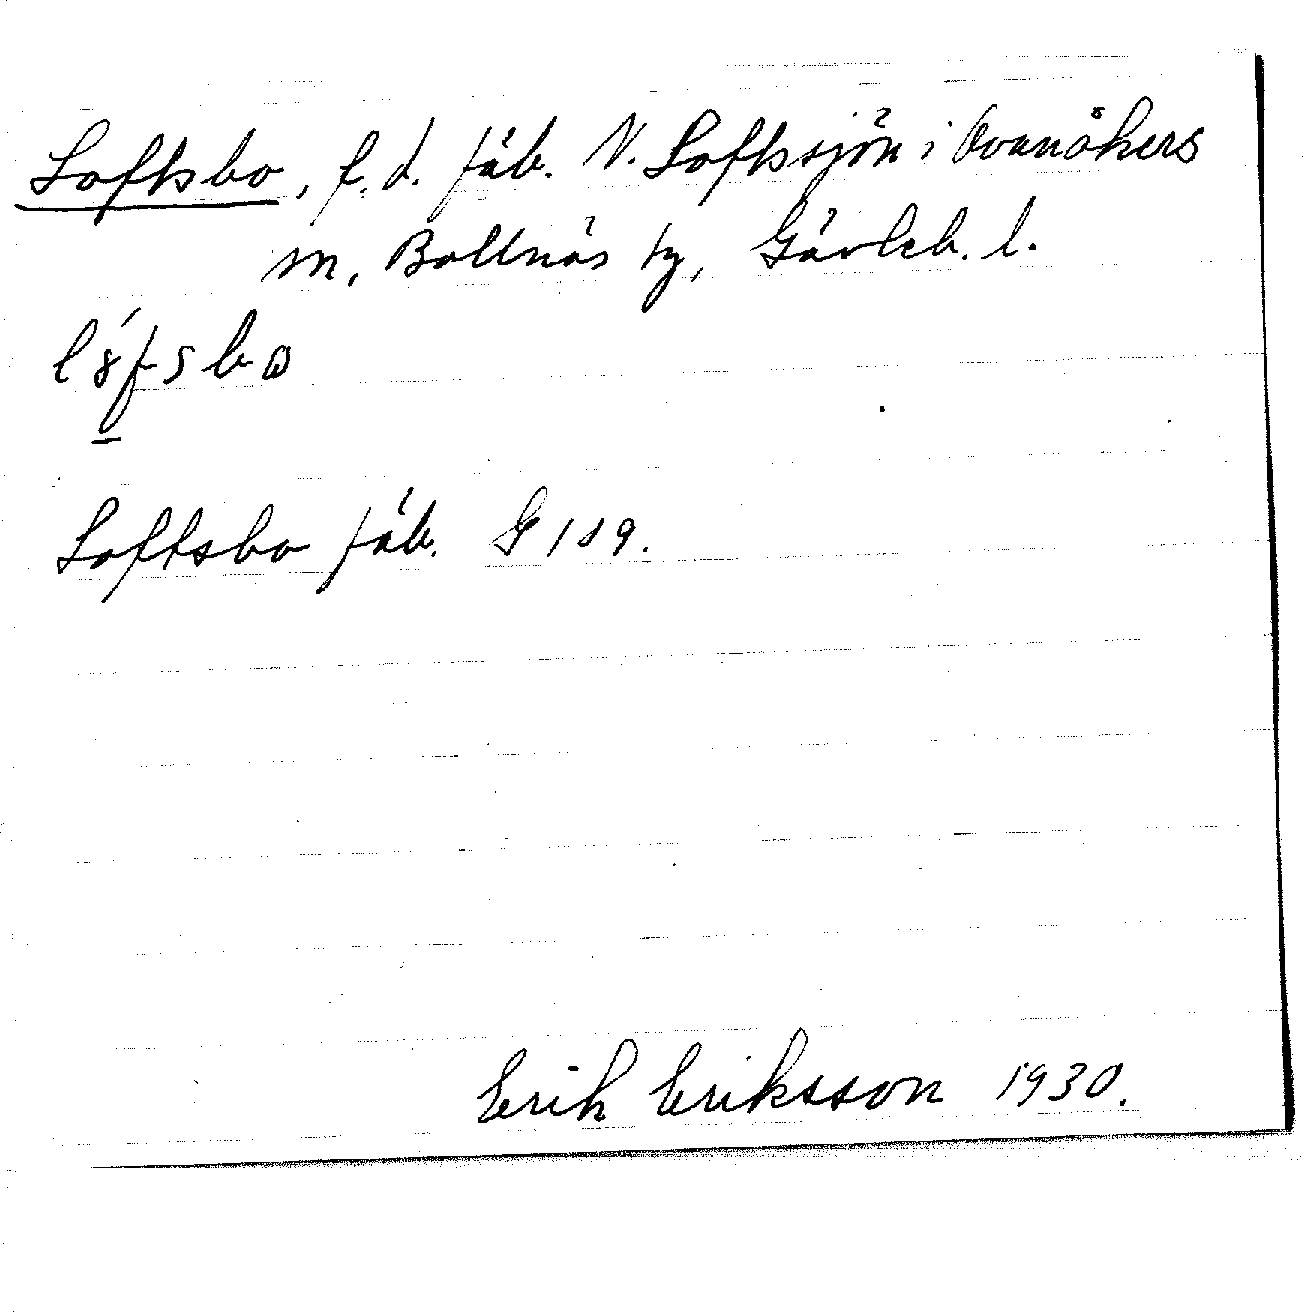 Loftsbo, f.d. fäb. N. Loftssjön i Ovanåkers
sn, Bollnäs tg, Gävleb. l.
Loftsbo fäb. G 109.
Erik Eriksson 1930.